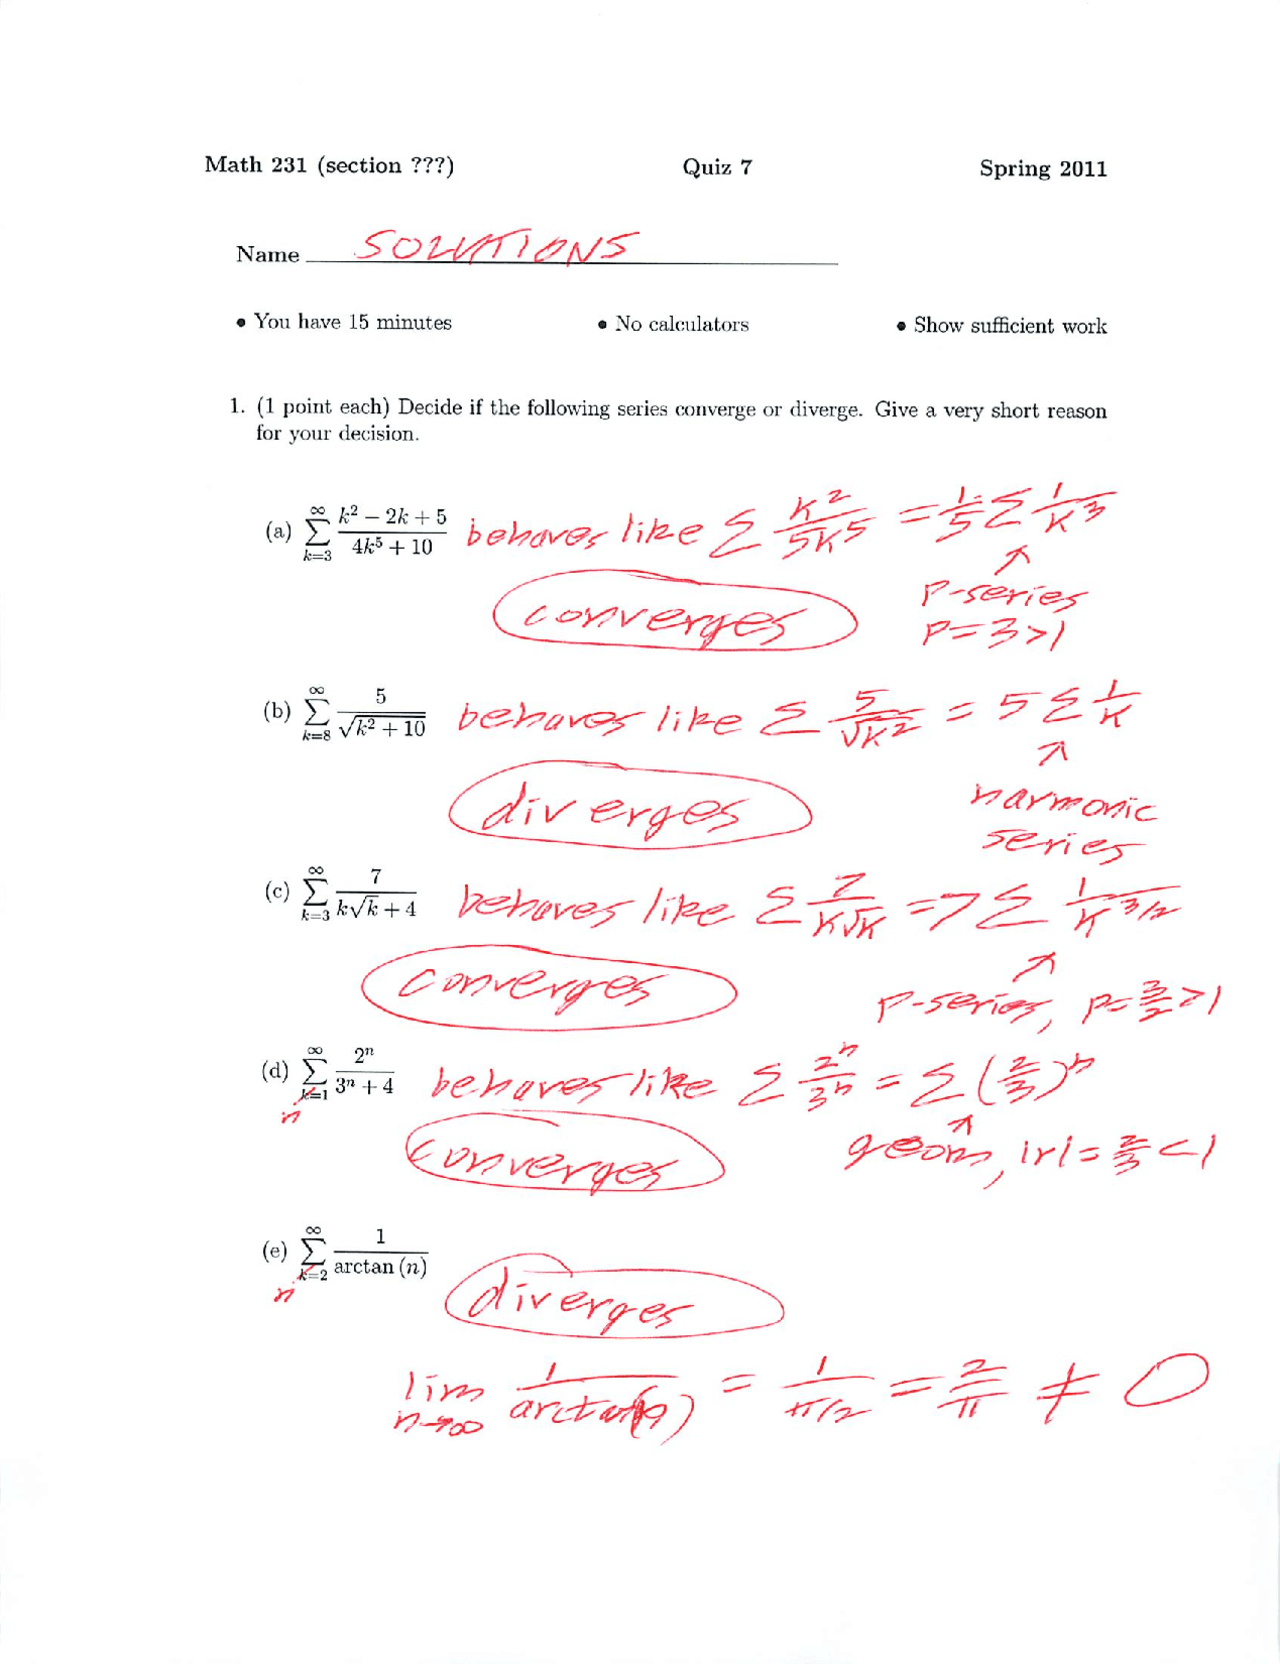 Math 231 (section ???) Quiz 7 Spring 2011
Name SOLUTIONS
• You have 15 minutes • No calculators • Show sufficient work
1. (1 point each) Decide if the following series converge or diverge. Give a very short reason
for your decision.
(a) ∑_{k=3}^{∞} (k² − 2k + 5)/(4k⁵ + 10) behaves like ∑ k²/(5k⁵) = 1/5 ∑ 1/k³
↑
p-series
converges p=3>1
(b) ∑_{k=8}^{∞} 5/√(k² + 10) behaves like ∑ 5/√(k²) = 5 ∑ 1/k
↑
diverges harmonic
series
(c) ∑_{k=3}^{∞} 7/(k√k + 4) behaves like ∑ 7/(k√k) = 7 ∑ 1/k^{3/2}
↑
converges p-series, p=3/2>1
(d) ∑_{k=1}^{∞} 2ⁿ/(3ⁿ + 4) behaves like ∑ 2ⁿ/3ⁿ = ∑ (2/3)ⁿ
n ↑
converges geom, |r|=2/3<1
(e) ∑_{k=2}^{∞} 1/arctan (n) diverges
n
lim_{n→∞} 1/arctan(n) = 1/(π/2) = 2/π ≠ 0